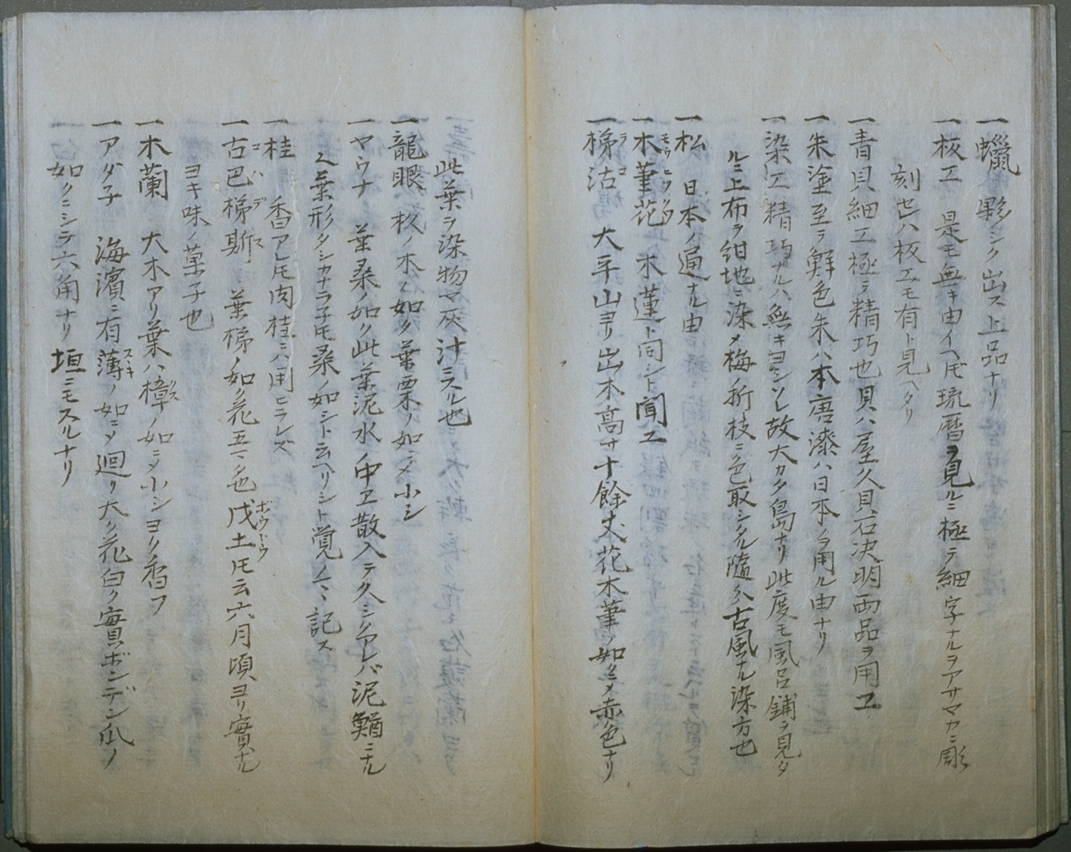 一蠟 夥シク出ス上品ナリ
一板工 是モ無キ由イヘ𪜈琉暦ヲ見ルニ極テ細字ナルヲアサマカニ彫
刻セリ ハ板工モ有ト見ヘタリ
一青貝細工極テ精巧也貝ハ屋久貝石决明両品ヲ用エ
一朱塗至テ鮮色朱ハ本唐漆ハ日本ノヲ用ル由ナリ
一染工精巧ナルハ無キヨシソレ故大カタ島ナリ此度モ風呂鋪ヲ見タ
ルニ上布ヲ紺地ニ染メ梅ノ折枝ニ色取シタル随分古風ナル染方也
一松 日本ノ通ナル由
一木筆花 木蓮ト同シト聞エ
一梯沽 大平山ヨリ出木高サ十餘丈花木筆ノ如クニメ赤色ナリ
此葉ヲ染物ノ灰汁ニスル也
一龍眼 核ノ木ノ如ク葉栗ノ如ニメ小シ
一マウナ 葉桑ノ如ク此葉泥水ノ中エ散入テ久シクアレバ泥鰌ニナル
ト葉形タシカナラ子𪜈桑ノ如シト云ヘリシト覚ノマヽ記ス
一桂 香アレ𪜈肉桂ニハ用ヒラレズ
一古巴梯斯 葉梯ノ如ク花五ベ也戊土𪜈云六月頃ヨリ實ナル
ヨキ味ノ菓子也
一木蘭 大木アリ葉ハ樟ノ如ニメ小シヨク香フ
一アダ子 海濱ニ有薄ノ如ニメ廻リ大ク花白ク實ボンデン瓜ノ
如クニシテ六角ナリ垣ニモスルナリ